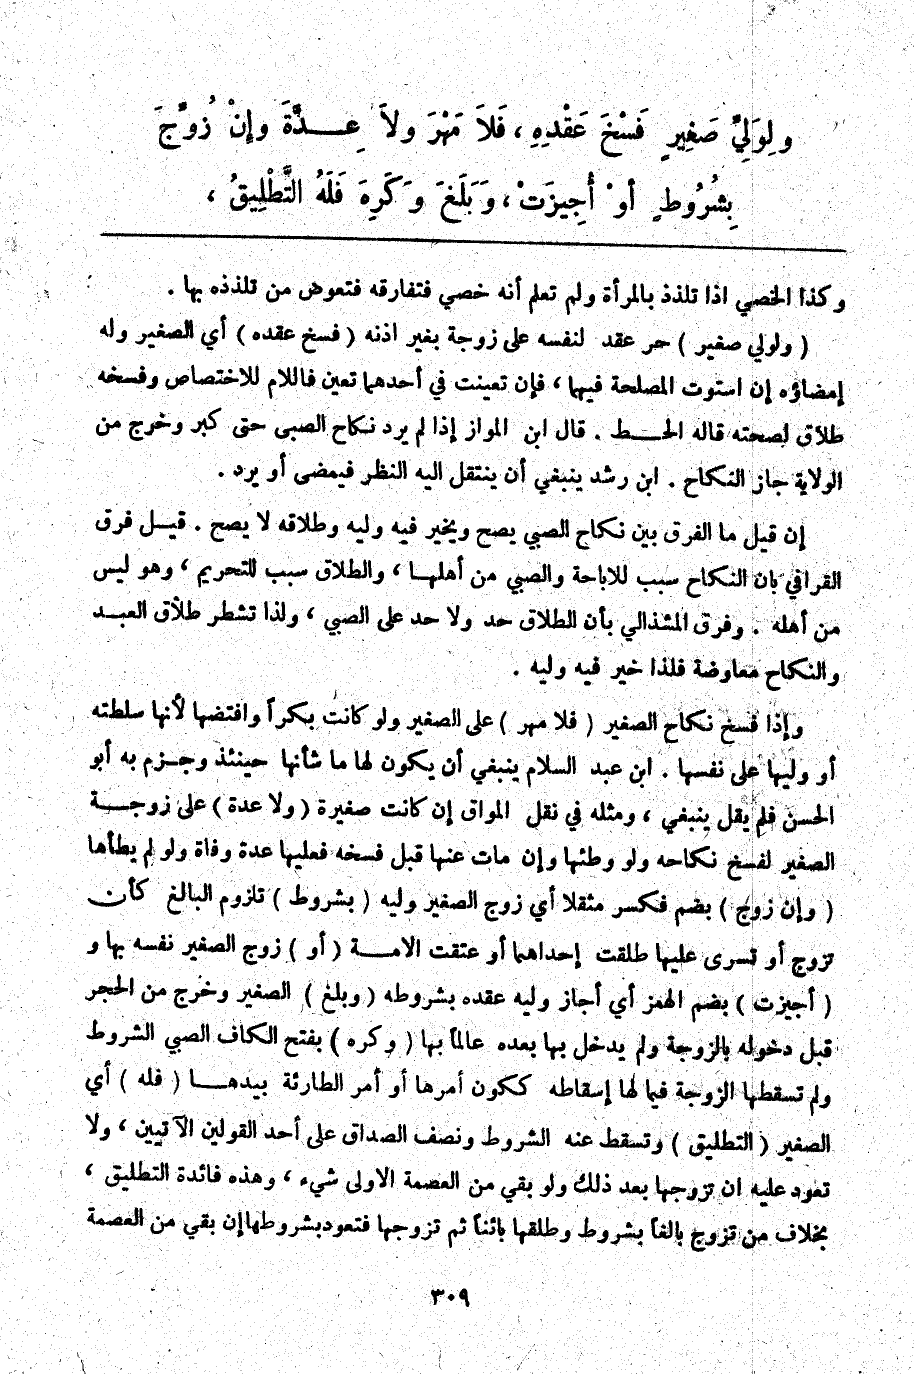 ولِوَلِيِّ صَغِيرٍ فَسْخُ عَقْدِهِ ، فَلاَ مَهْرَ ولاَ عِدَّةَ وإنْ زُوِّجَ
بِشُرُوطٍ أوْ أُجِيزَتْ ، وَبَلَغَ وَكَرِهَ فَلَهُ التَّطْلِيقُ ،
وكذا الخصي اذا تلذذ بالمرأة ولم تعلم أنه خصي فتفارقه فتعوض من تلذذه بها .
( ولولي صغير ) حر عقد لنفسه على زوجة بغير اذنه ( فسخ عقده ) أي الصغير وله
إمضاؤه إن استوت المصلحة فيهما ، فإن تعينت في أحدهما تعين فاللام للاختصاص وفسخه
طلاق لصحته قاله الحـط . قال ابن المواز إذا لم يرد نكاح الصبى حتى كبر وخرج من
الولاية جاز النكاح . ابن رشد ينبغي أن ينتقل اليه النظر فيمضى أو يرد .
إن قيل ما الفرق بين نكاح الصبي يصح ويخير فيه وليه وطلاقه لا يصح . قيـل فرق
القرافي بان النكاح سبب للاباحة والصبي من أهلهـا ، والطلاق سبب للتحريم ، وهو ليس
من أهله . وفرق المشذالي بأن الطلاق حد ولا حد على الصبي ، ولذا تشطر طلاق العبـد
والنكاح معاوضة فلذا خير فيه وليه .
وإذا فسخ نكاح الصغير ( فلا مهر ) على الصغير ولو كانت بكراً وافتضها لأنها سلطته
أو وليها على نفسها . ابن عبد السلام ينبغي أن يكون لها ما شأنها حينئذ وجـزم به أبو
الحسن فلم يقل ينبغي ، ومثله في نقل المواق إن كانت صغيرة ( ولا عدة ) على زوجـة
الصغير لفسخ نكاحه ولو وطئها وإن مات عنها قبل فسخه فعليها عدة وفاة ولو لم يطأها
( وإن زوج ) بضم فكسر مثقلا أي زوج الصغير وليه ( بشروط ) تلزوم البالغ كأن
تزوج أو تسرى عليها طلقت إحداهما أو عتقت الامـة ( أو ) زوج الصغير نفسه بها و
( أجيزت ) بضم الهمز أي أجاز وليه عقده بشروطه ( وبلغ ) الصغير وخرج من الحجر
قبل دخوله بالزوجة ولم يدخل بها بعده عالماً بها ( وكره ) بفتح الكاف الصبي الشروط
ولم تسقطها الزوجة فيما لها إسقاطه ككون أمرها أو أمر الطارئة بيدهـا ( فله ) أي
الصغير ( التطليق ) وتسقط عنه الشروط ونصف الصداق على أحد القولين الآتيين ، ولا
تعود عليه ان تزوجها بعد ذلك ولو بقي من العصمة الاولى شيء ، وهذه فائدة التطليق ،
بخلاف من تزوج بالغاً بشروط وطلقها بائناً ثم تزوجها فتعودبشروطهاإن بقي من العصمة
٣٠٩